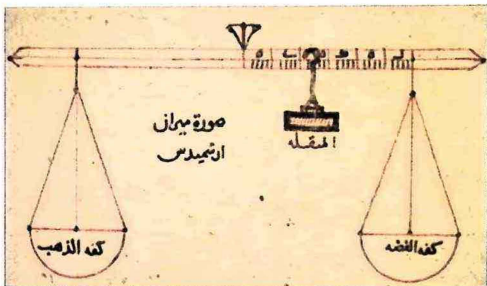 صورة ميزان
ارشميدس
المنقله
كفه الذهب
كفه الفضه